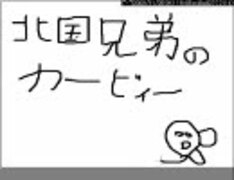 北国兄弟の
カービィー